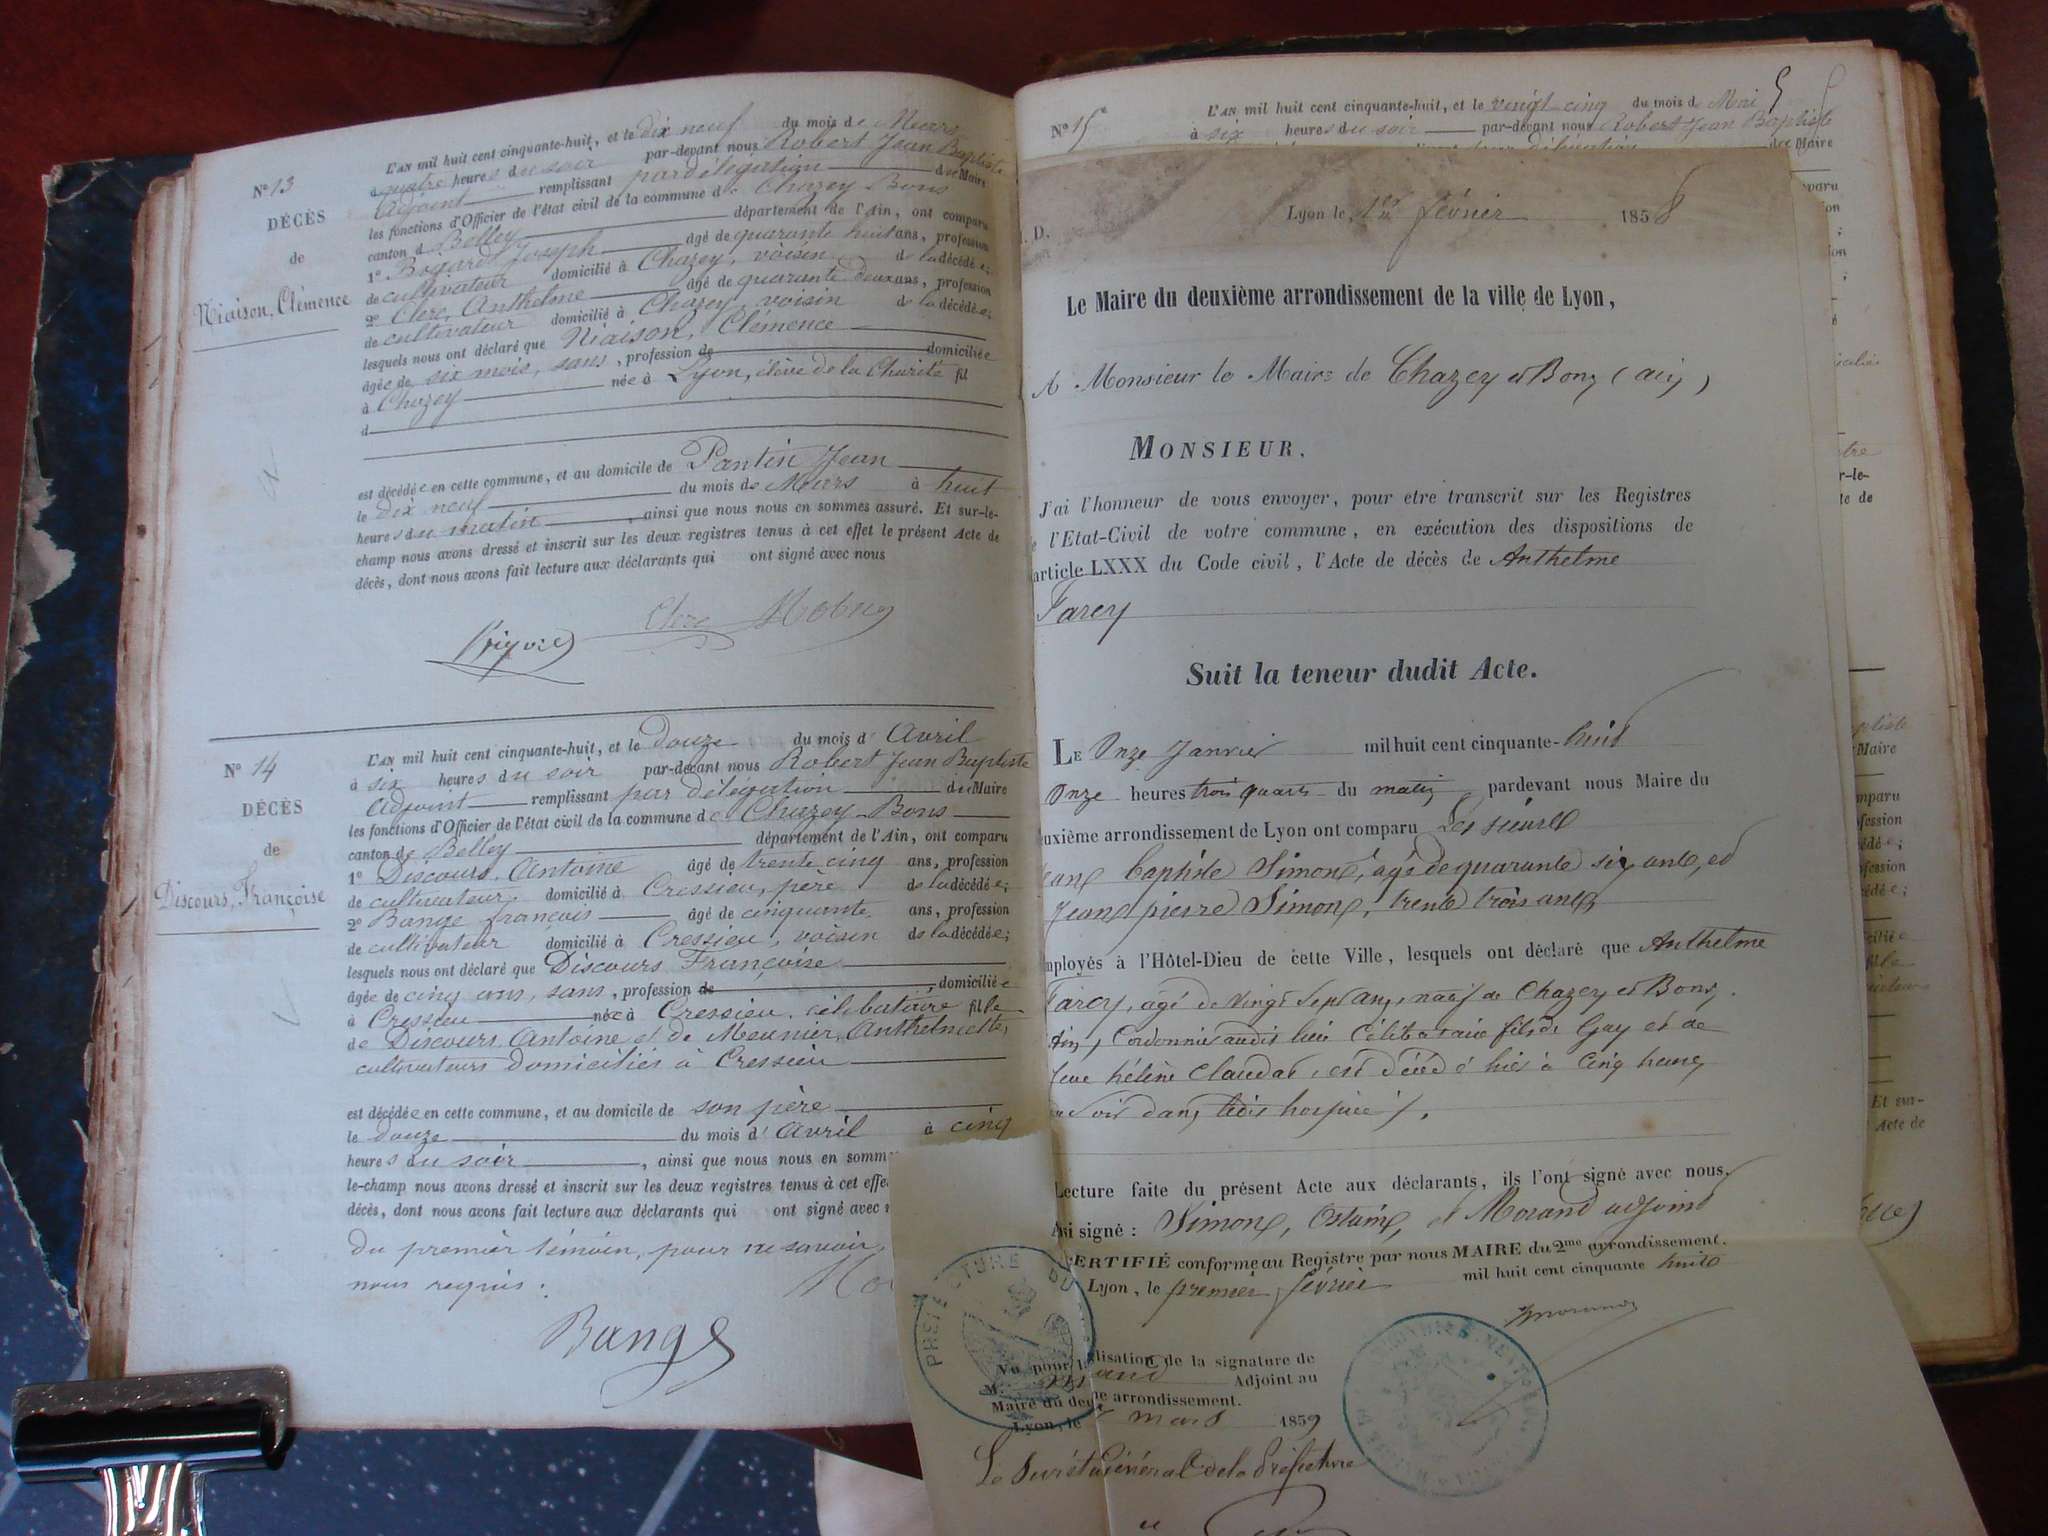 N° 13
DÉCÈS
de
Niaison, Clémence
L'AN mil huit cent cinquante-huit, et le dix neuf du mois de Mars
à quatre heures du soir par-devant nous Robert Jean Baptiste
Adjoint remplissant par délégation du Maire
les fonctions d'Officier de l'état civil de la commune de Chazey Bons
canton de Belley département de l'Ain, ont comparu
1° Joseph âgé de quarante huit ans, profession
de cultivateur domicilié à Chazey, voisin de la décédée;
2° Clerc, Anthelme âgé de quarante deux ans, profession
de cultivateur domicilié à Chazey, voisin de la décédée;
lesquels nous ont déclaré que Niaison, Clémence
âgée de six mois, sans, profession de domiciliée
à Chazey née à Lyon, élève de la Charité fil
d
est décédée en cette commune, et au domicile de Pantin Jean
le dix neuf du mois de Mars à huit
heures du matin, ainsi que nous nous en sommes assuré. Et sur-le-
champ nous avons dressé et inscrit sur les deux registres tenus à cet effet le présent Acte de
décès, dont nous avons fait lecture aux déclarants qui ont signé avec nous
Clerc
N° 14
DÉCÈS
de
Discours, Françoise
L'AN mil huit cent cinquante-huit, et le douze du mois d' Avril
à six heures du soir par-devant nous Robert Jean Baptiste
Adjoint remplissant par délégation du Maire
les fonctions d'Officier de l'état civil de la commune de Chazey Bons
canton de Belley département de l'Ain, ont comparu
1° Discours, Antoine âgé de trente cinq ans, profession
de cultivateur, domicilié à Cressieu, père de la décédée;
2° Bange françois âgé de cinquante ans, profession
de cultivateur domicilié à Cressieu, voisin de la décédée;
lesquels nous ont déclaré que Discours Françoise
âgée de cinq ans, sans, profession de, domiciliée
à Cressieu née à Cressieu, célibataire fille
de Discours, Antoine et de Meunier, Anthelmette,
cultivateurs domiciliés à Cressieu
est décédée en cette commune, et au domicile de son père
le douze du mois d' Avril à cinq
heures du soir, ainsi que nous nous en somm
le-champ nous avons dressé et inscrit sur les deux registres tenus à cet effe
décès, dont nous avons fait lecture aux déclarants qui ont signé avec
du premier témoin, pour ne savoir,
nous requis.
Bange
N° 15
L'AN mil huit cent cinquante-huit, et le vingt cinq du mois de Mai
à six heures du soir par-devant nous Robert Jean Baptiste
du Maire
. D.
Lyon le 1er février 1858
Le Maire du deuxième arrondissement de la ville de Lyon,
A Monsieur le Maire de Chazey et Bons (ain)
MONSIEUR,
J'ai l'honneur de vous envoyer, pour etre transcrit sur les Registres
e l'Etat-Civil de votre commune, en exécution des dispositions de
article LXXX du Code civil, l'Acte de décès de Anthelme
Farcy
Suit la teneur dudit Acte.
LE Onze Janvier mil huit cent cinquante-huit
Onze heures trois quarts du matin pardevant nous Maire du
uxième arrondissement de Lyon ont comparu Les sieurs
baptiste Simon, âgé de quarante six ans, et
Jean pierre Simon, trente trois ans,
mployés à l'Hôtel-Dieu de cette Ville, lesquels ont déclaré que Anthelme
Farcy, agé de vingt sept ans, natif de Chazey et Bons,
Ain, Cordonnier audit lieu Célibataire fils de Guy et de
hélène Claudas, est décédé hier à Cinq heures
soir dans ledit hospice.
Lecture faite du présent Acte aux déclarants, ils l'ont signé avec nous,
signé : Simon, et Morand adjoint
CERTIFIÉ conforme au Registre par nous MAIRE du 2me arrondissement.
Lyon, le premier février mil huit cent cinquante huit
PREFECTURE DU
Vu pour lisation de la signature de
M. Adjoint au
Maire du deu me arrondissement.
Lyon, le mars 1859
Le Secrétaire Général de la Préfecture
Maire
Et sur-
Acte de